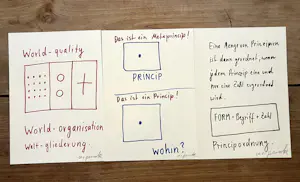 World-quality
World-organisation
Welt-gliederung.
Das ist ein Metaprincip!
PRINCIP
Das ist ein Princip!
Wohin?
Eine Menge von Principien
ist dann geordnet, wenn
jedem Princip eine und
nur eine Zahl zugeordnet
wird.
FORM = Begriff + Zahl
Principordnung.